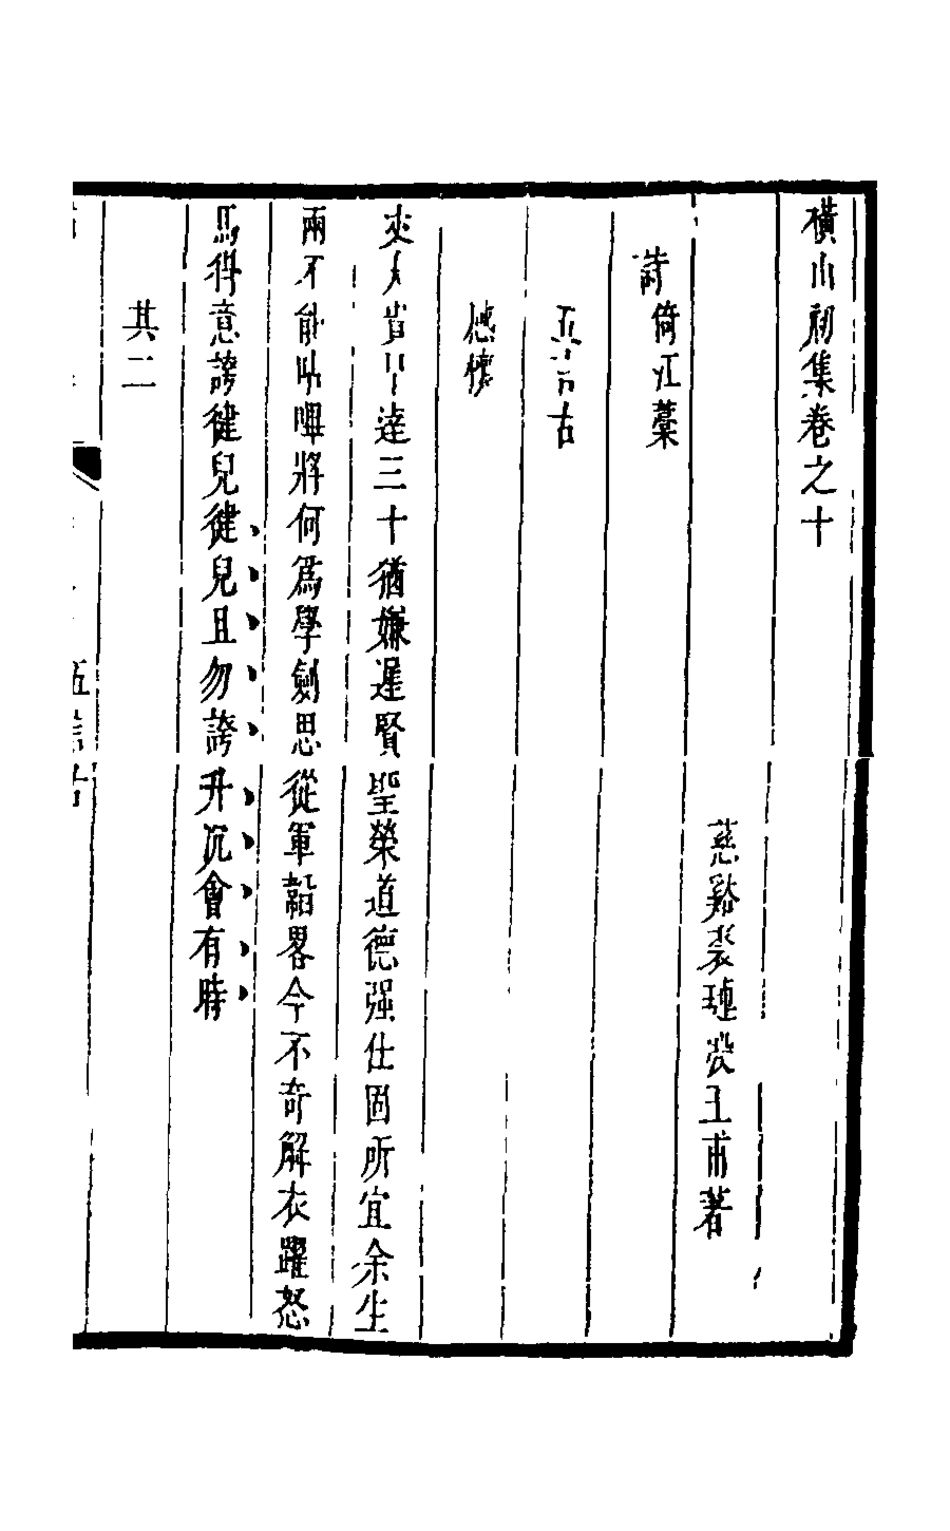 橫山初集卷之十
慈谿裘璉殷玉甫著
詩 倚江藁
五言古
感懷
丈人貴早達三十猶嫌遲賢聖榮道德强仕固所宜余生
兩不能呫嗶將何爲學劍思從軍韜畧今不奇解衣躍怒
馬得意誇健兒健兒且勿誇升沉會有時
其二